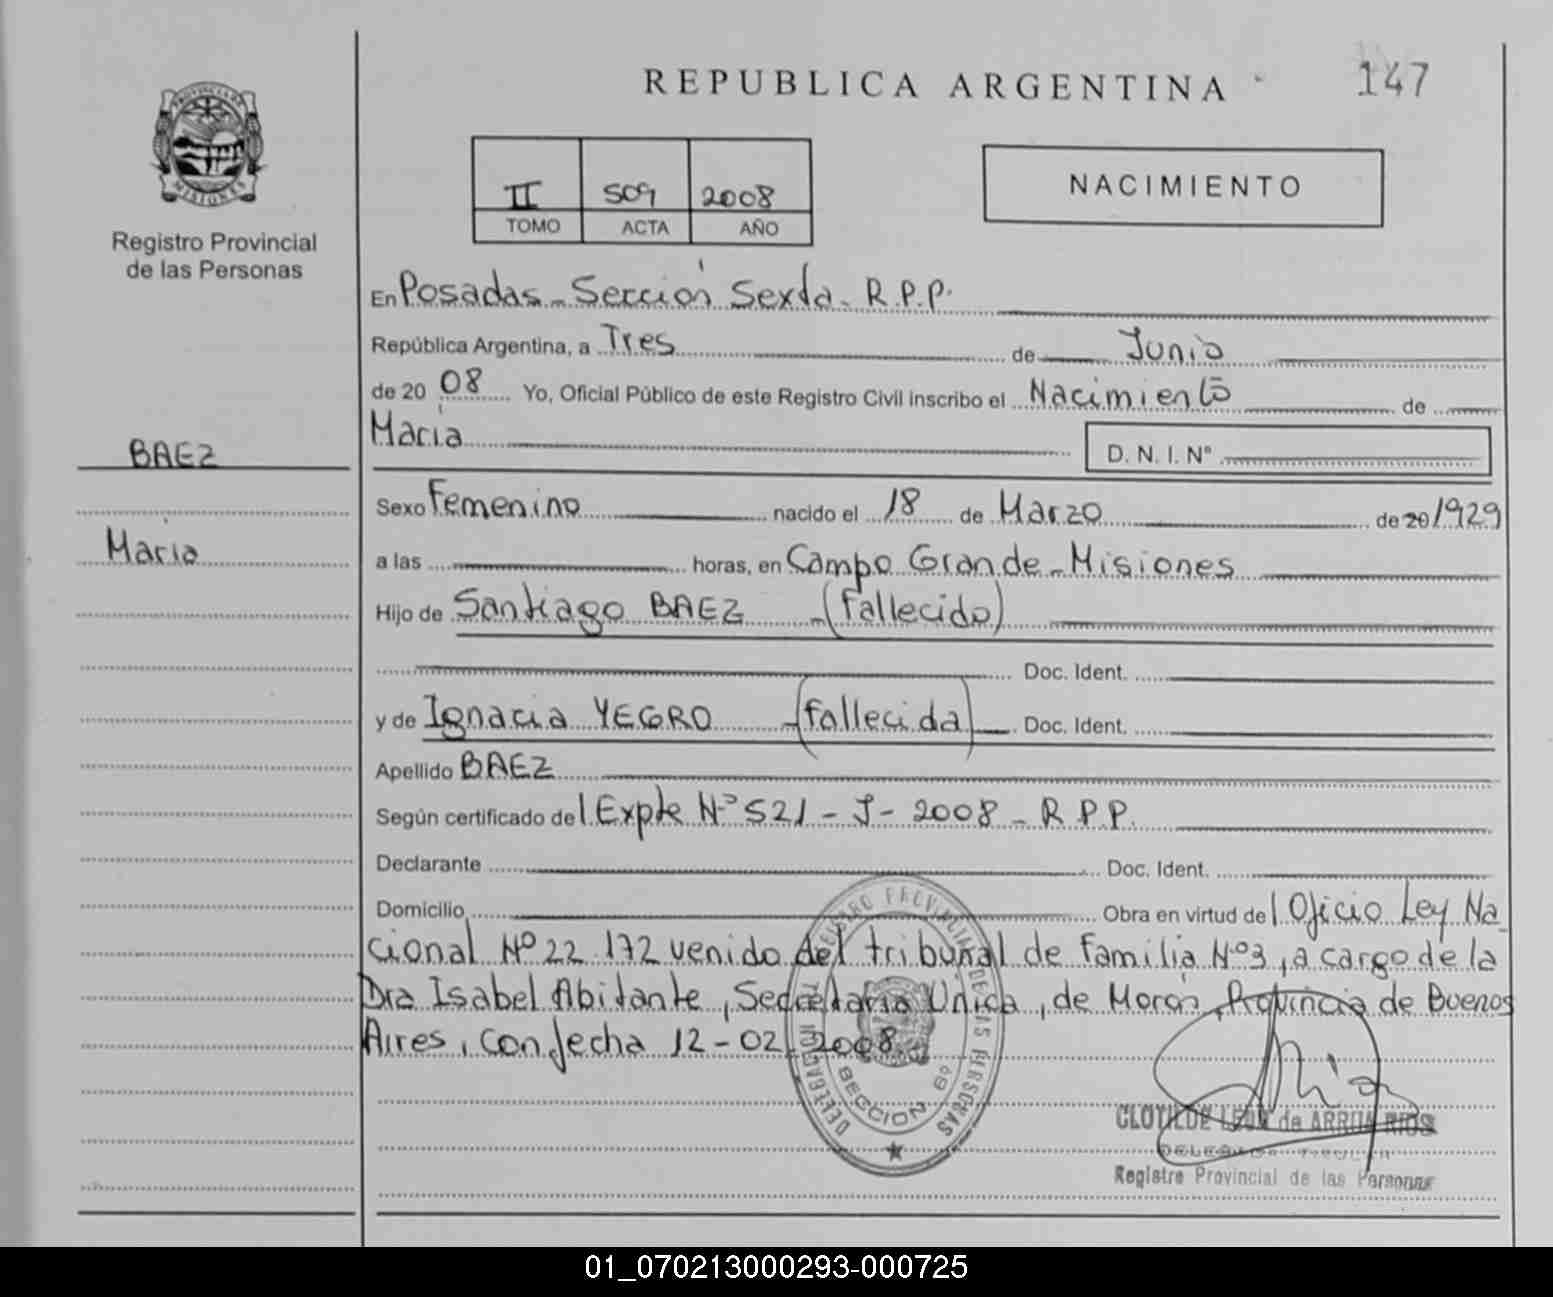 REPUBLICA ARGENTINA
147
PROVINCIA DE
MISIONES
Registro Provincial
de las Personas
II 509 2008
TOMO ACTA AÑO
NACIMIENTO
En Posadas - Sección Sexta - R.P.P.
República Argentina, a Tres de Junio
de 20 08 Yo, Oficial Público de este Registro Civil inscribo el Nacimiento de
María
D. N. I. N°
BAEZ
María
Sexo Femenino nacido el 18 de Marzo de 20 1929
a las horas, en Campo Grande - Misiones
Hijo de Santiago BAEZ - (Fallecido)
Doc. Ident.
y de Ignacia YEGRO - (fallecida) Doc. Ident.
Apellido BAEZ
Según certificado de l Expte N° 521 - J - 2008 - R.P.P.
Declarante Doc. Ident.
Domicilio Obra en virtud de l Oficio Ley Na
cional N° 22.172 venido del tribunal de familia N°3, a cargo de la
Dra Isabel Abitante, Secretaria Única, de Morón, Provincia de Buenos
Aires, con fecha 12-02-2008.
REGISTRO PROVINCIAL DE LAS PERSONAS
SECCION 6°
CLOTILDE LEON de ARRUA RIOS
DELEGADA TITULAR
Registro Provincial de las Personas
01_070213000293-000725